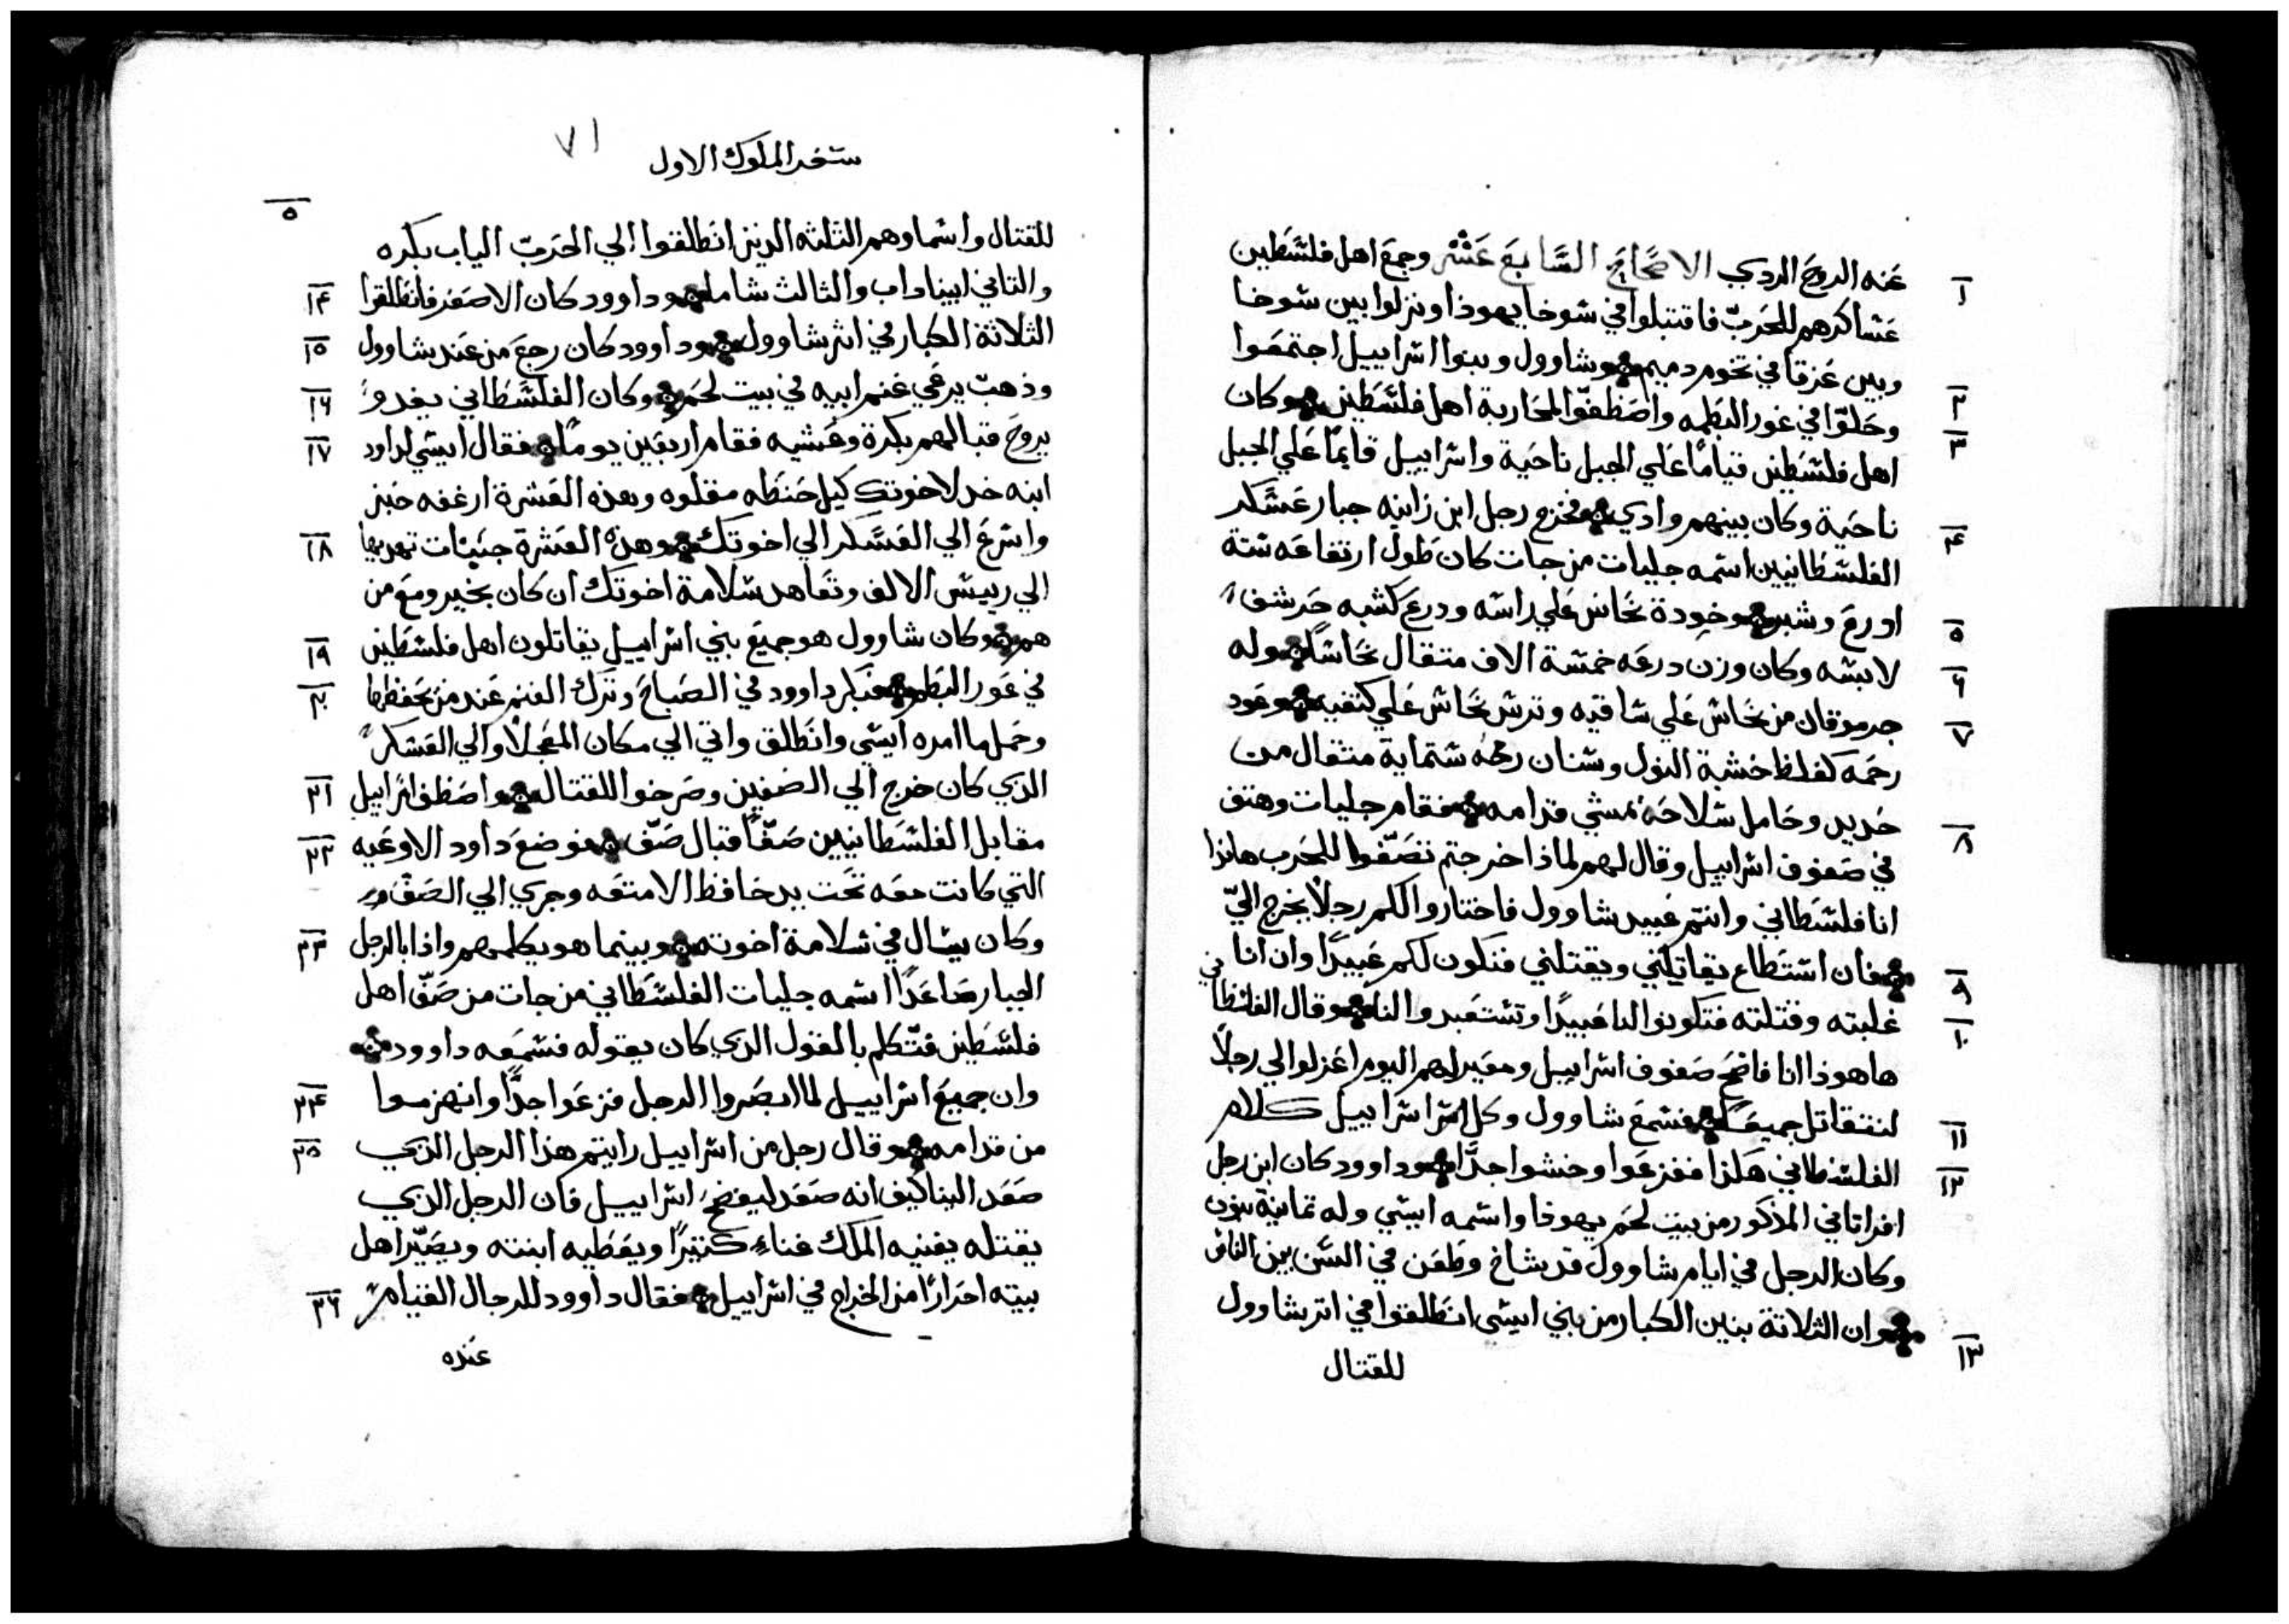 عنه الروح الردي الاصحاح السابع عشر وجمع اهل فلسطين
١
عساكرهم للحرب فاقتبلوا في شوخا يهوذا ونزلوا بين شوخا
وبين عزقا في تخوم دميم وشاوول وبنوا اسراييل اجتمعوا
٢
وحلّوا في غور البطمه واصطفوا لمحاربة اهل فلسطين وكان
٣
اهل فلسطين قيامًا علي الجبل ناحية واسراييل قايمًا علي الجبل
ناحية وكان بينهم وادي فخرج رجل ابن زانيه جبار عسكر
٤
الفلسطانيين اسمه جليات من جات كان طول ارتفاعه ستة
اورع وشبر وخودة نحاس علي راسه ودرع كشبه حرشف
٥
لابسه وكان وزن درعه خمسة الاف متقال نحاسًا وله
٦
جرموقان من نحاس علي ساقيه وترس نحاس علي كتفيه وعود
٧
رحمه كغلظ خشبة النول وسنان رمحه ستماية متقال من
حديد وحامل سلاحه يمشي قدامه فقام جليات وهتف
٨
في صفوف اسراييل وقال لهم لماذا خرجتم تصّفوا للحرب هاندا
انا فلسطاني وانتم عبيد شاوول فاختاروا لكم رجلًا يخرج اليّ
فان استطاع يقاتلني ويقتلني فنكون لكم عبيدًا وان انا
٩
غلبته وقتلته فتكونوا لنا عبيدًا وتستعبدوا لنا وقال الفلسطاني
١٠
هاهوذا انا فاضح صفوف اسراييل ومعيرلهم اليوم اعزلوا لي رجلًا
لنتقاتل جميعًا فسمع شاوول وكل اسراييل كلام
١١
الفلسطاني هكذا ففزعوا وخشوا جدًّا وداوود كان ابن رجل
١٢
افراتاني المذكور من بيت لحم يهوذا واسمه ايسي وله تمانية بنون
وكان الرجل في ايام شاوول قد شاخ وطعن في السن بين الناس
وان الثلاثة بنين الكبار من بني ايسي انطلقوا في اتر شاوول
١٣
للقتال
سفر الملوك الاول
٧١
٥
للقتال واسماوهم الثلثه الدين انطلقوا الي الحرب الياب بكره
والتاني ابيناداب والثالث شاما وداوود كان الاصغر فانطلقوا
١٤
الثلاثة الكبار في اثر شاوول وداوود كان رجع من عند شاوول
١٥
وذهب يرعي غنم ابيه في بيت لحم وكان الفلسطاني يغدو
١٦
يروح قبالهم بكرة وعشيه فقام اربعين يومًا فقال ايسي لداود
١٧
ابنه خد لاخوتك كيل حنطه مقلوه وهذه العشرة ارغفه خبز
واسرع الي العسكر الي اخوتك وهذه العشرة جبنات تهديها
١٨
الي رييس الالف وتعاهد سلامة اخوتك ان كان بخير ومع من
هم وكان شاوول هو جميع بني اسراييل يقاتلون اهل فلسطين
١٩
في غور البطم فبكر داوود في الصباح وترك الغنم عند من يحفظها
٢٠
وحمل ما امره ايسي وانطلق واتي الي مكان المعجلا والي العسكر
الذي كان خرج الي الصفين وصرخوا للقتال واصطف اسراييل
٢١
مقابل الفلسطانيين صفًّا قبال صفّ فوضع داود الاوعيه
٢٢
التي كانت معه تحت يد حافظ الامتعه وجري الي الصفّ
وكان يسال في سلامة اخوته وبينما هو يكلمهم واذا بالرجل
٢٣
الجبار صاعدًا اسمه جليات الفلسطاني من جات من صفّ اهل
فلسطين فتكلم بالقول الذي كان يقوله فسمعه داوود
وان جميع اسراييل لما ابصروا الرجل فزعوا جدًّا وانهزموا
٢٤
من قدامه وقال رجل من اسراييل رايتم هذا الرجل الذي
٢٥
صعد الينا كيف انه صعد ليفضح اسراييل فان الرجل الذي
يقتله يغنيه الملك غناء كتيرًا ويعطيه ابنته ويصيّر اهل
بيته احرارًا من الخراج في اسراييل فقال داوود للرجال القيام
٢٦
عنده